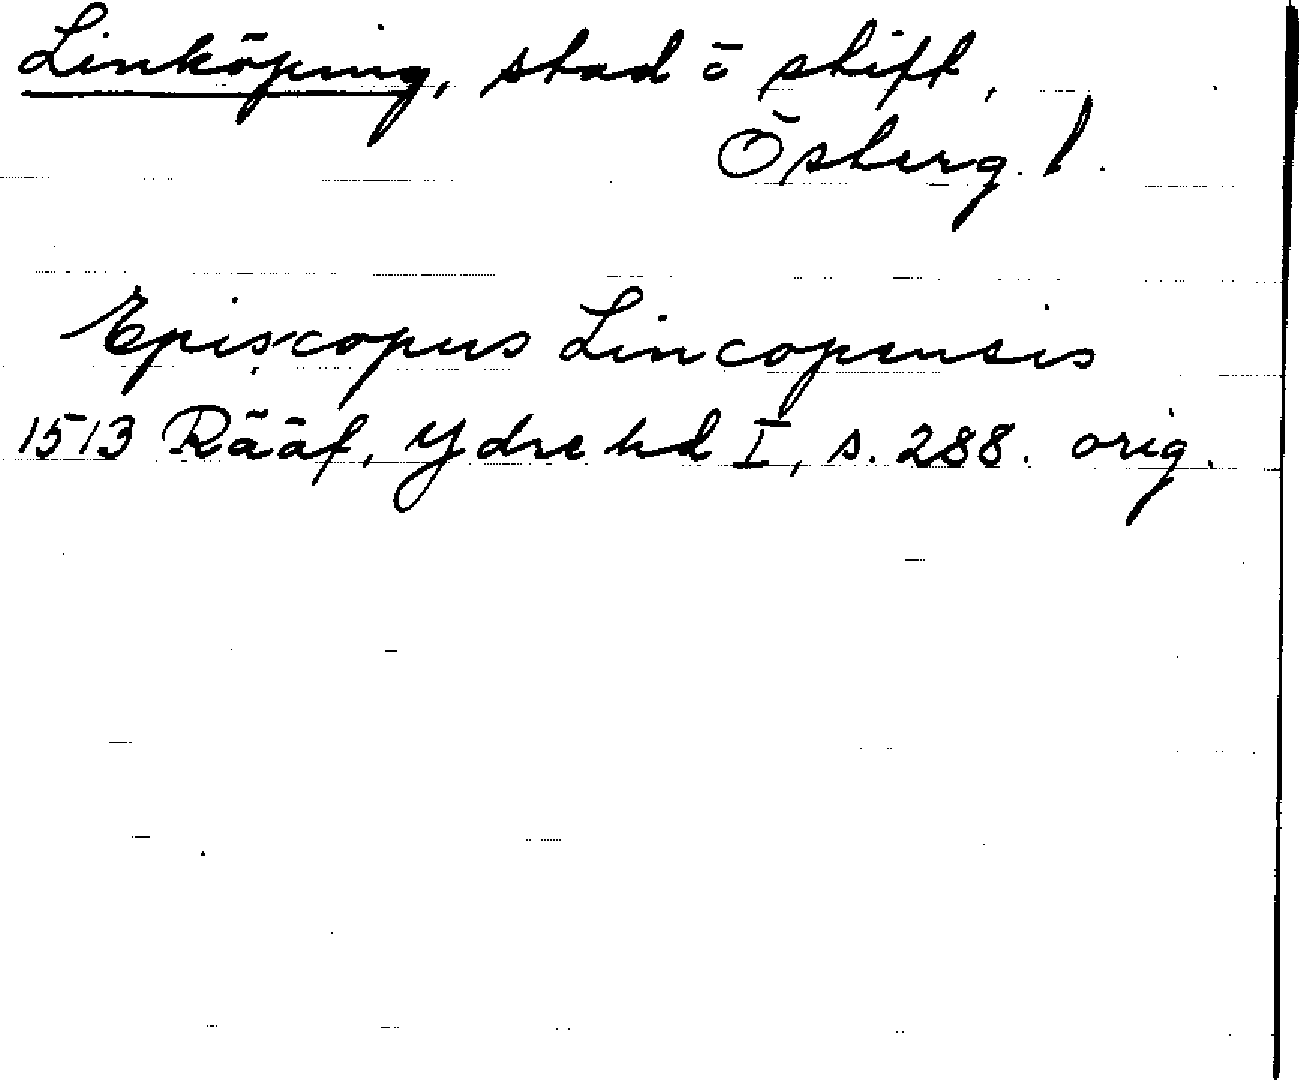 Linköping, stad o stift,
Östberg. l.
Episcopus Lincopensis
1513 Rääf, Ydre hd I, s. 288. orig.